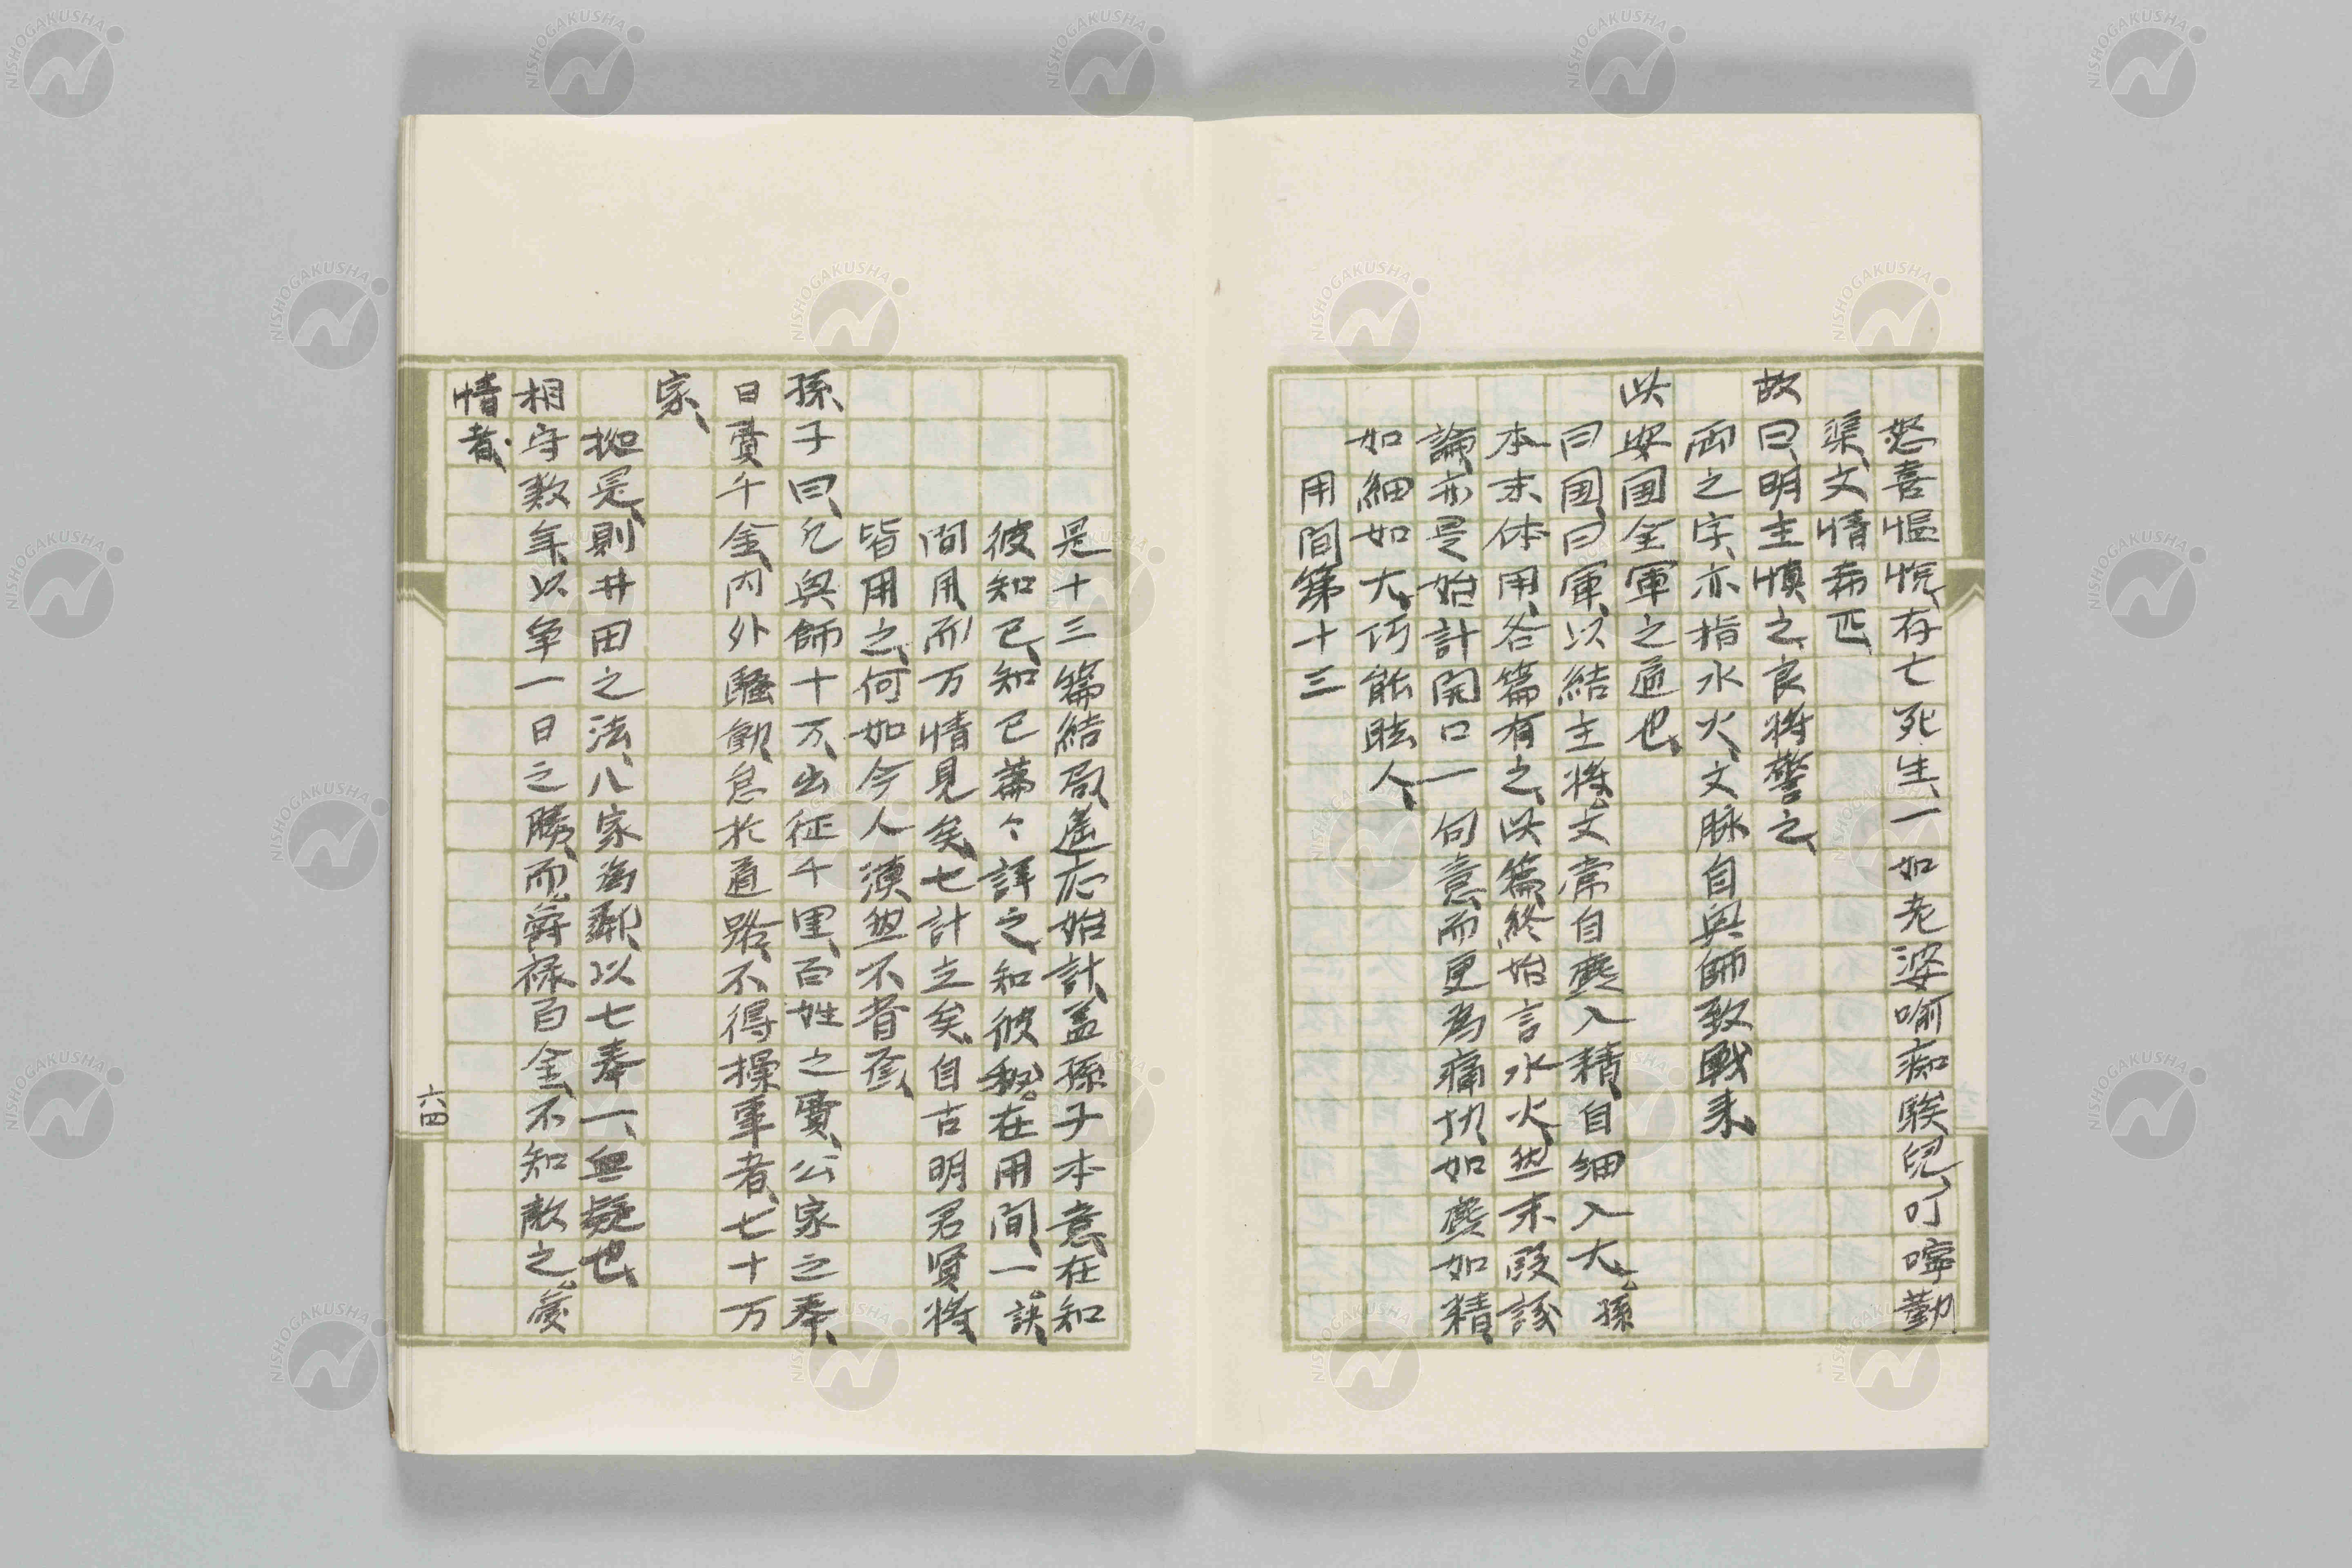 怒喜慍悦、存亡死生、一如老婆喻痴騃兒、叮嚀勤
渠、文情希匹、
故曰、明主慎之、良将警之、
両之字、亦指水火、文脉自與師致戦来、
此安国全軍之道也、
曰国、曰軍、以結主将。文常自麤入精、自細入大。孫
本末体用、各篇有之、此篇終始言水火、然末段談
論、亦是始計開口一句意、而更為痛切、如麤如精、
如細如大、巧能眩人、
用間第十三
是十三篇結局、遙応始計、蓋孫子本意、在知
彼知己、知己篇々詳之、知彼秘。在用間、一。訣
間用而万情見矣、七計立矣、自古明君賢将、
皆用之、何如今人漠然不省焉、
孫子曰、凡與師十万、出征千里、百姓之費、公家之奉、
日費千金、内外騒動、怠於道路、不得操事者、七十万
家、
拠是、則井田之法、八家為鄰、以七奉一、無疑也、
相守数年、以争一日之勝、而、爵禄百金、不知敵之。
情者、
六四
NISHOGAKUSHA